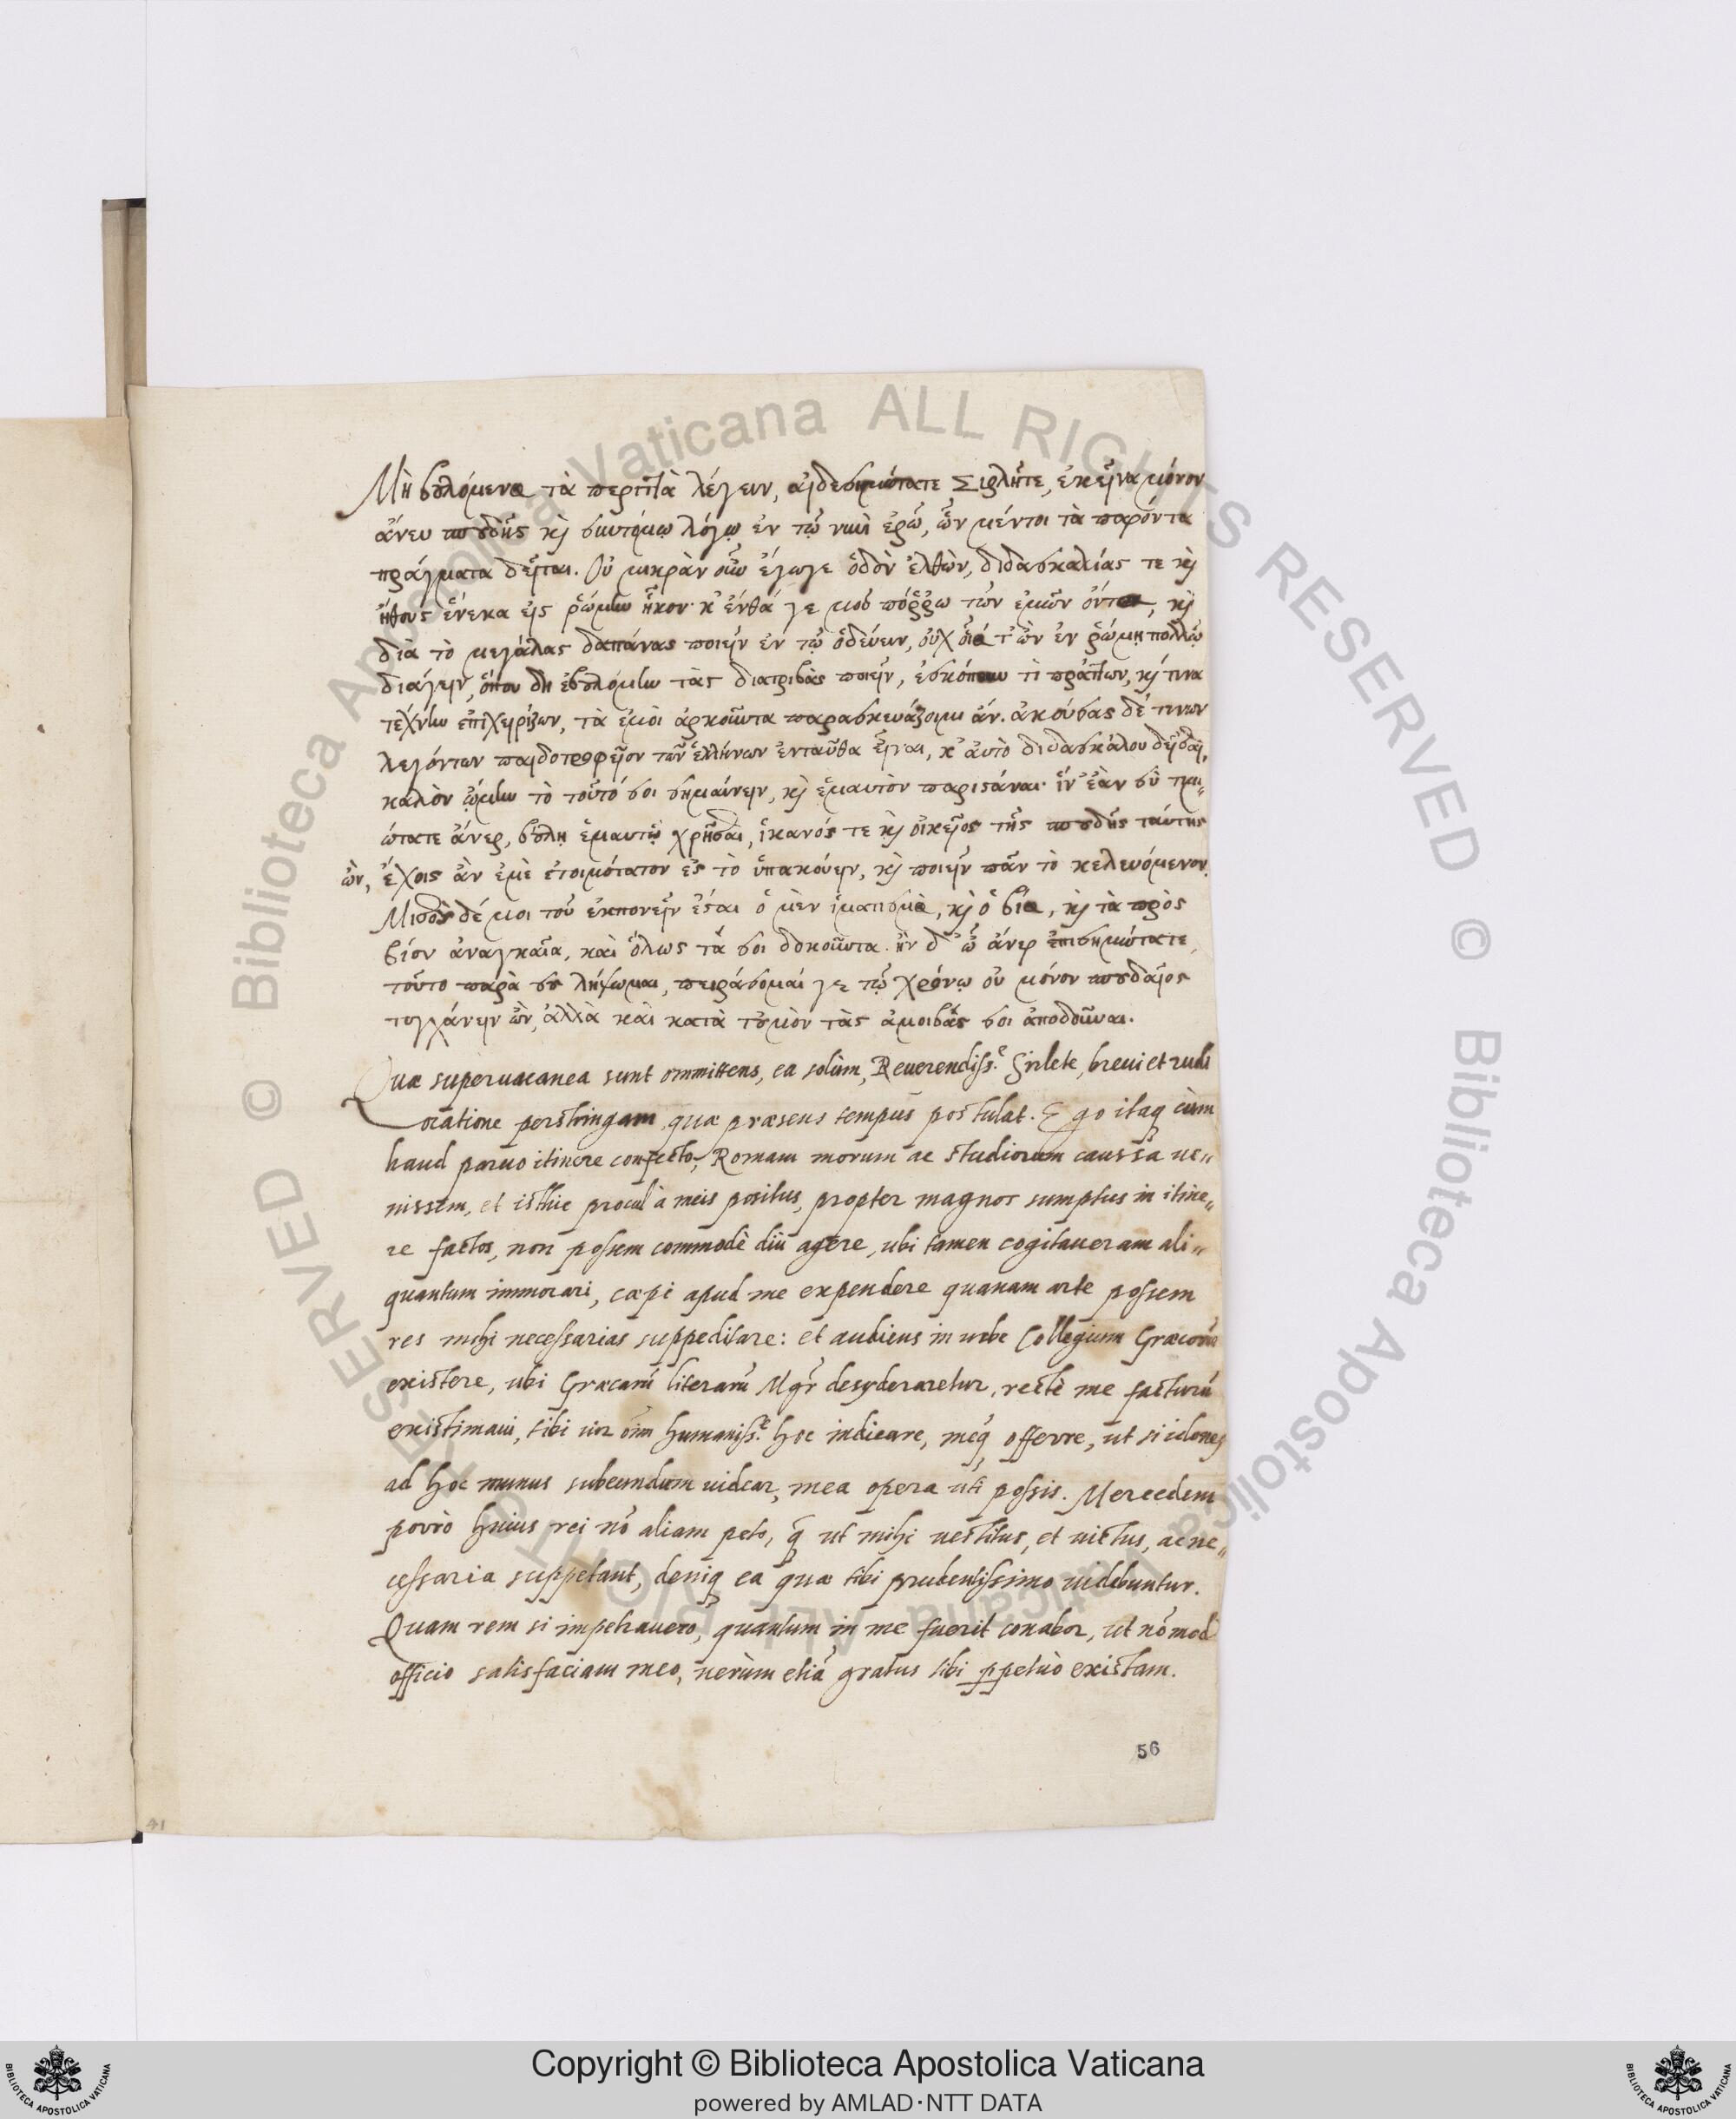 Μὴ βουλόμενος τὰ περιττὰ λέγειν, αἰδεσιμώτατε Σιρλῆτε, ἐκεῖνα μόνον
ἄνευ σπουδῆς κ συντόμῳ λόγῳ ἐν τῷ νυνὶ ἐρῶ, ὧν μέντοι τὰ παρόντα
πράγματα δεῖται. Οὐ μικρὰν οὖν ἔγωγε ὁδὸν ἐλθὼν, διδασκαλίας τε κ
ἤθους ἕνεκα εἰς ῥώμην ἧκον· κ ἐνθά γε μοῦ πόῤῥω τῶν ἐμῶν ὄντος, κ
διὰ τὸ μεγάλας δαπάνας ποιεῖν ἐν τῷ ὁδεύειν, οὐχ οἷός τ' ὢν ἐν ῥώμῃ πολλῷ
διάγειν, ὅπου δὴ ἐβουλόμην τὰς διατριβὰς ποιεῖν, ἐσκόπουν τὶ πράττων, κ τινα
τέχνην ἐπιχειρίζων, τὰ ἐμοὶ ἀρκοῦντα παρασκευάζοιμι ἄν. ἀκούσας δέ τινων
λεγόντων παιδοτροφεῖον τῶν ἑλλήνων ἐνταῦθα εἶναι, κ αὐτὸ διδασκάλου δεῖσθαι,
καλὸν ᾤμην τὸ τοῦτό σοι σημαίνειν, κ ἐμαυτὸν παριστάναι· ἵν' ἐὰν σὺ τιμι„
ώτατε ἄνερ, βούλῃ ἐμαυτῷ χρῆσθαι, ἱκανός τε κ οἰκεῖος τῆς σπουδῆς ταύτης
ὢν, ἔχοις ἂν ἐμὲ ἑτοιμότατον ἐς τὸ ὑπακούειν, κ ποιεῖν πᾶν τὸ κελευόμενον.
Μισθὸς δέ μοι τοῦ ἐκπονεῖν ἔσται ὁ μὲν ἱματισμὸς, κ ὁ βίος, κ τὰ πρὸς
βίον ἀναγκαῖα, καὶ ὅλως τὰ σοι δοκοῦντα. ἢν δ' ὦ ἄνερ ἐπισημώτατε,
τοῦτο παρὰ σοῦ λήψωμαι, πειράσομαί γε τῷ χρόνῳ οὐ μόνον σπουδαῖος
τυγχάνειν ὢν, ἀλλὰ καὶ κατὰ τοὐμὸν τὰς ἀμοιβάς σοι ἀποδοῦναι.
Quæ superuacanea sunt ommittens, ea solùm, Reuerendiss.e Sirlete, breui et rudi
oratione perstringam, quæ præsens tempus postulat. Ego itaq cùm
haud paruo itinere confecto, Romam morum ac studiorum caussa ue„
nissem, et isthic procul à meis positus, propter magnos sumptus in itine„
re factos, non possem commodè diù agere, ubi tamen cogitaueram ali„
quantum immorari, cæpi apud me expendere quanam arte possem
res mihi necessarias suppeditare: et audiens in urbe Collegium Græcorū
existere, ubi Græcarū literarū Mgr̃ desyderaretur, rectè me facturū
existimaui, tibi uir oīm humaniss.e hoc indicare, meq offerre, ut si idoneꝰ
ad hoc munus subeundum uidear, mea opera uti possis. Mercedem
porrò huius rei nō aliam peto, q̃ ut mihi uestitus, et uictus, ac ne„
cessaria suppetant, deniq ea quæ tibi prudentissimo uidebuntur.
Quam rem si impetrauero, quantum in me fuerit conabor, ut nō modò
officio satisfaciam meo, uerùm etiā gratus tibi ꝑpetuò existam.
56
41
© Biblioteca Apostolica Vaticana ALL RIGHTS RESERVED
© Biblioteca Apostolica Vaticana ALL RIGHTS RESERVED
Copyright © Biblioteca Apostolica Vaticana
powered by AMLAD·NTT DATA
BIBLIOTECA APOSTOLICA VATICANA
BIBLIOTECA APOSTOLICA VATICANA